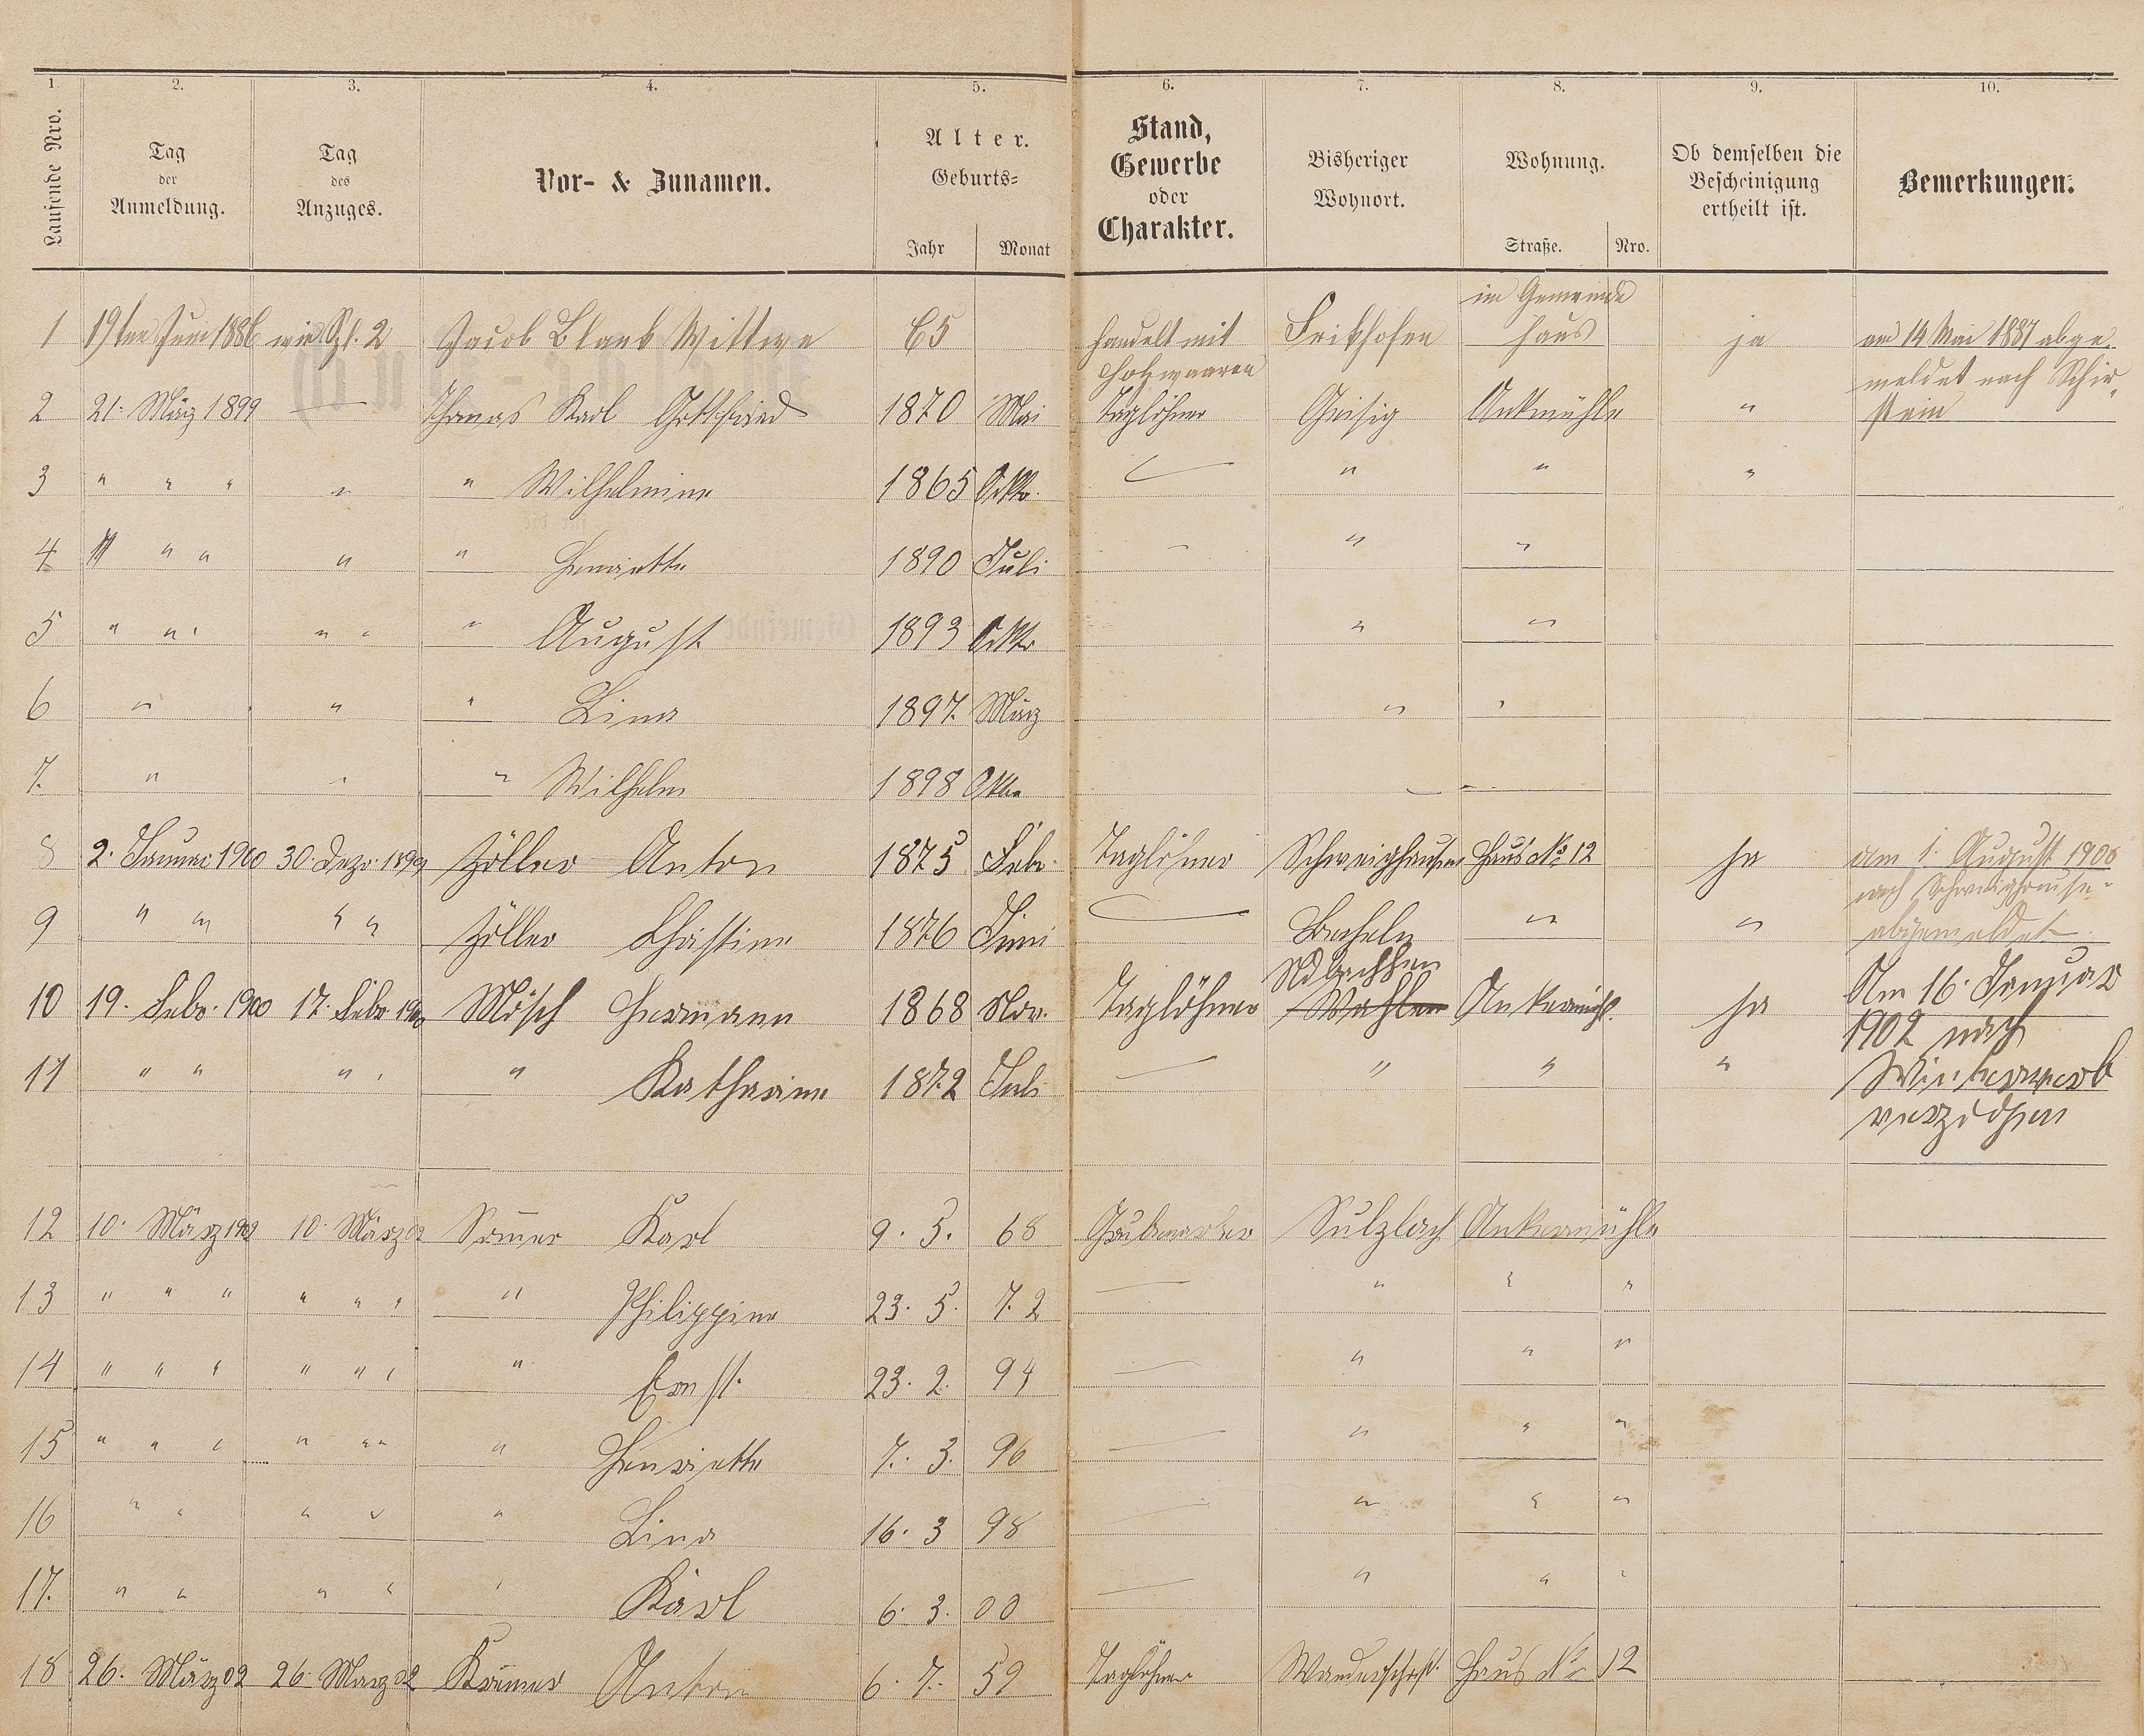 1. 2. 3. 4. 5. 6. 7. 8. 9. 10.
Laufende Nro.
Tag der Anmeldung.
Tag des Anzuges.
Vor- & Zunamen.
Alter.
Geburts=
Jahr Monat
Stand, Gewerbe oder Charakter.
Bisheriger Wohnort.
Wohnung.
Straße. Nro.
Ob demselben die Bescheinigung ertheilt ist.
Bemerkungen.
im Gemeinde
1 19ten Juni 1886 wie Sp. 2 Jacob Blank Wittwe 65 handelt mit Frikhofen haus ja am 14 Mai 1887 abge-
Holzwaaren meldet nach Schier-
2 21. März 1899 — Thomas Karl Gottfried 1870 Mai Taglöhner Geisig Ankmühle " stein
3 " " " " " Wilhelmine 1865 Oktb. — " " "
4 " " " " " Henriette 1890 Juli - " "
5 " " " " " " August 1893 Oktb " "
6 " " " Lina 1897. März " "
7. " " " Wilhelm 1898 Oktb
8 2. Januar 1900 30. Dezr. 1899 Zöller Anton 1875 Febr. Taglöhner Schweighausen Haus No 12 ja am 1. August 1900
nach Schweighause-
9 " " " " Zöller Christine 1876 Juni — Becheln " " abgemeldet
10 19. Febr. 1900 17. Febr 1900 Mösch Hermann 1868 Nov. Taglöhner Wahlen Ankermühl. ja Am 16. Januar
1902 nach
11 " " " " " Katharine 1872 Juli — " " " Winterwerb
verzochen
12 10. März 1902 10. März 02 Sommer Karl 9. 5. 68 Sulzbach Ankermühle
13 " " " " " " " Philippine 23. 5. 72 — " " "
14 " " " " " " " Ernst. 23. 2. 94 — " " "
15 " " " " " " Henriette 7. 3. 96 — " " "
16 " " " " " Lina 16. 3 98 — " " "
17. " " " " " Karl 6. 3. 00 — " " "
18 26. März 02 26. März 02 Krämer Anton 6. 7. 59 Taglöhner Wanderschaft. Haus No 12